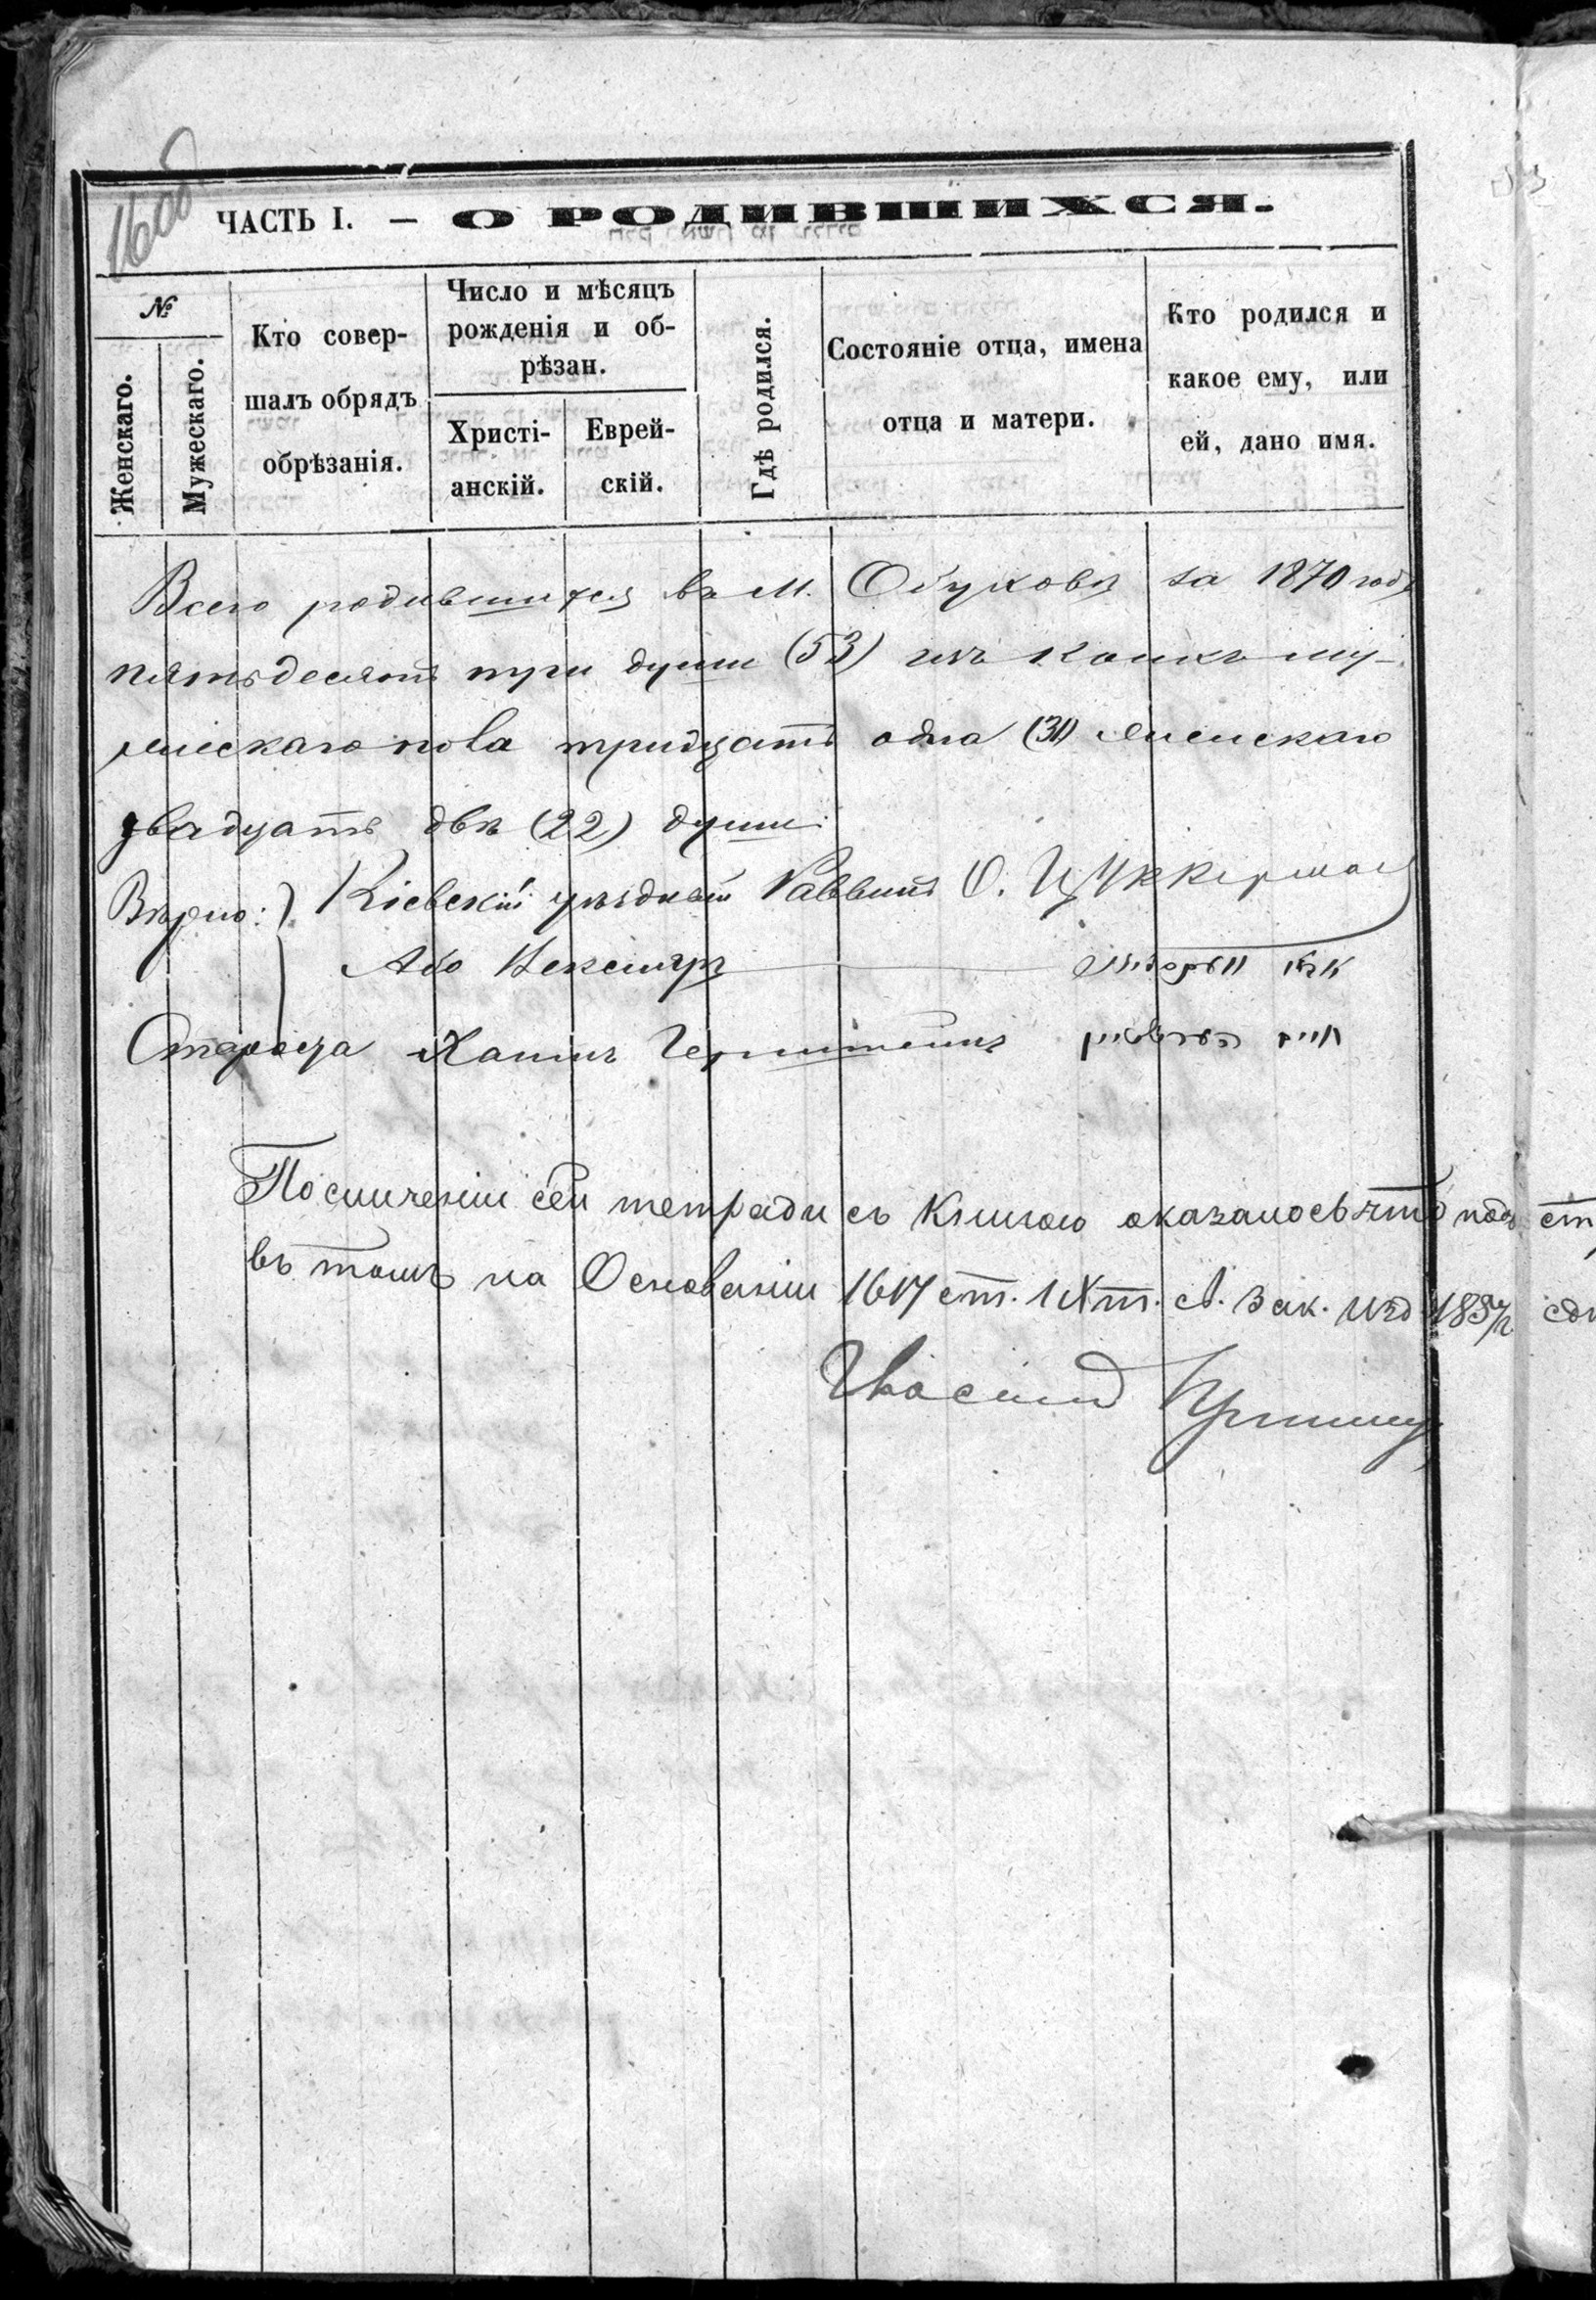 16 об
ЧАСТЬ I. — О РОДИВШИХСЯ.
№
Женскаго.
Мужескаго.
Кто совер-
шалъ обрядъ
обрѣзанія.
Число и мѣсяцъ
рожденія и об-
рѣзан.
Христі-
анскій.
Еврей-
скій.
Гдѣ родился.
Состояніе отца, имена
отца и матери.
Кто родился и
какое ему, или
ей, дано имя.
Всего родившихся въ М. Обуховѣ за 1870 годъ
пятьдесятъ три души (53) изъ коихъ му-
жескаго пола тридцать одна (31) женскаго
двадцать двѣ (22) души
Вѣрно: Кіевскій уѣздный Раввинъ О. Цуккерман
Або
Староста Хаимъ Герштейнъ חיים הערשטיין
По сличеніи сей тетради съ книгою оказалось что подъ ст
въ томъ на Основаніи 1617 ст. IX т. св. Зак. изд. 1857 г.